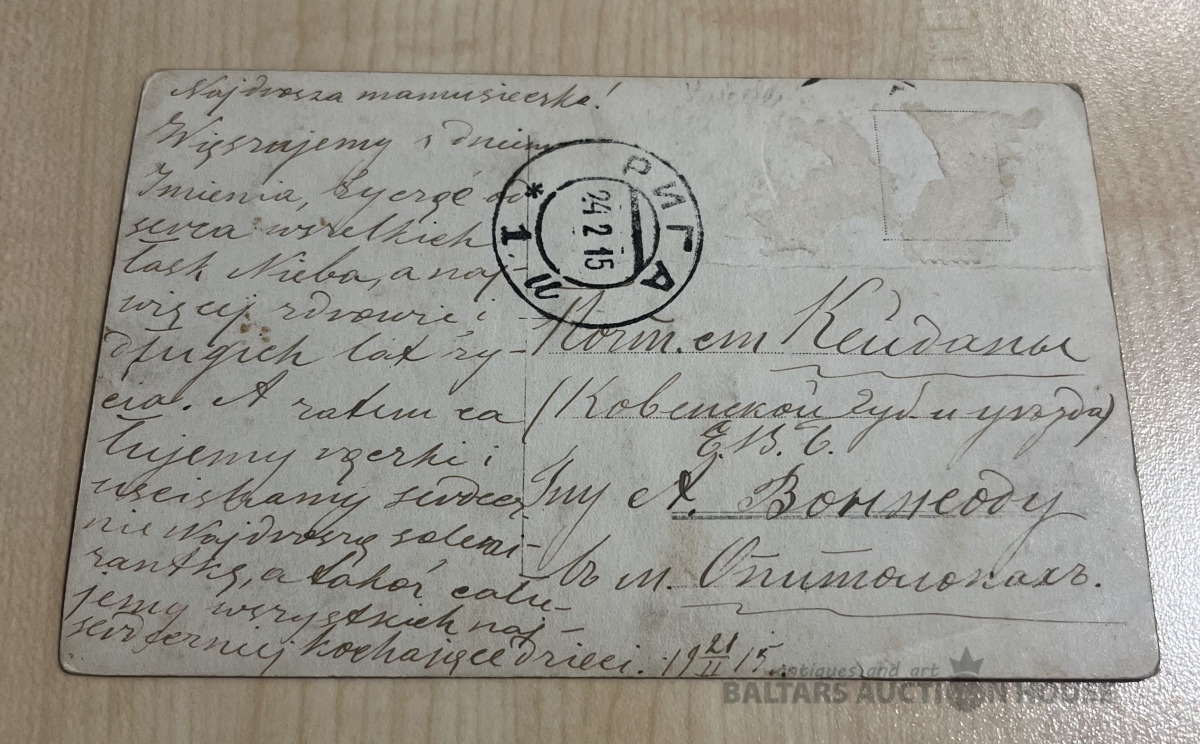 Najdrosza mamusieczko!
Więszujemy z dniem
Imienia, życzę od
serca wszelkich
łask Nieba, a naj-
więcej zdrowie i
długich lat ży-
cia. A zatem ca
łujemy rączki i
uściskamy serdecz
nie Najdroszą soleni-
zantkę, a takoż cału-
jemy wszystkich naj-
serdeczniej kochające dzieci. 19 21/II 15.
РИГА
24 2 15
* 1
Почт. ст Кейданы
(Ковенской губ и уѣзда)
Е. В. Б.
Гну А. Воннсоду
въ м. Опитолокахъ.
antiques and art
BALTARS AUCTION HOUSE